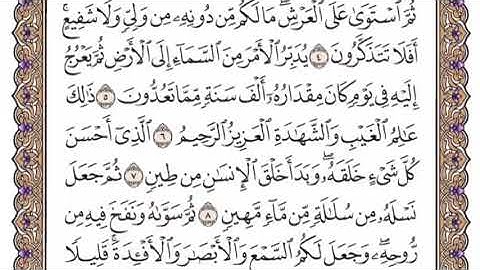 ثُمَّ ٱسْتَوَىٰ عَلَى ٱلْعَرْشِ ۖ مَا لَكُم مِّن دُونِهِۦ مِن وَلِىٍّ وَلَا شَفِيعٍ ۚ
أَفَلَا تَتَذَكَّرُونَ ٤ يُدَبِّرُ ٱلْأَمْرَ مِنَ ٱلسَّمَآءِ إِلَى ٱلْأَرْضِ ثُمَّ يَعْرُجُ
إِلَيْهِ فِى يَوْمٍ كَانَ مِقْدَارُهُۥٓ أَلْفَ سَنَةٍ مِّمَّا تَعُدُّونَ ٥ ذَٰلِكَ
عَٰلِمُ ٱلْغَيْبِ وَٱلشَّهَٰدَةِ ٱلْعَزِيزُ ٱلرَّحِيمُ ٦ ٱلَّذِىٓ أَحْسَنَ
كُلَّ شَىْءٍ خَلَقَهُۥ ۖ وَبَدَأَ خَلْقَ ٱلْإِنسَٰنِ مِن طِينٍ ٧ ثُمَّ جَعَلَ
نَسْلَهُۥ مِن سُلَٰلَةٍ مِّن مَّآءٍ مَّهِينٍ ٨ ثُمَّ سَوَّىٰهُ وَنَفَخَ فِيهِ مِن
رُّوحِهِۦ ۖ وَجَعَلَ لَكُمُ ٱلسَّمْعَ وَٱلْأَبْصَٰرَ وَٱلْأَفْـِٔدَةَ ۚ قَلِيلًا